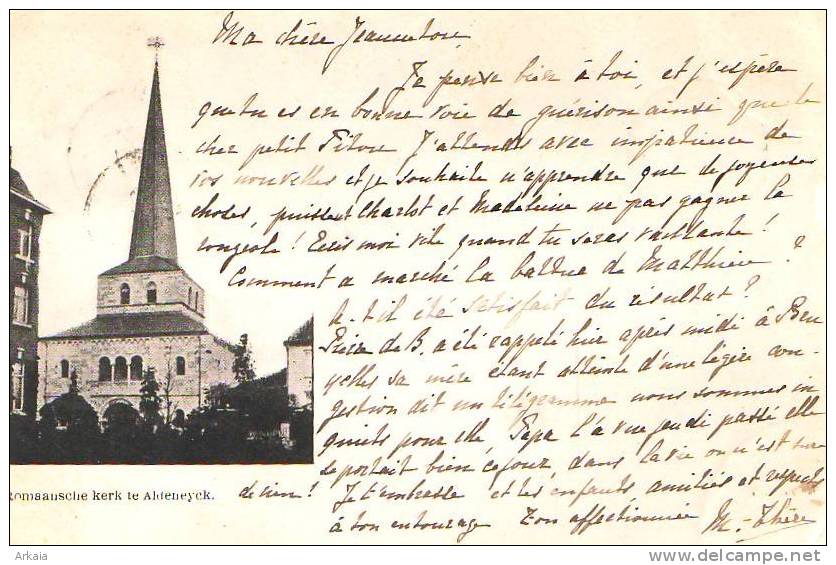 Ma chère Jeanneton,
Je pense bien à toi, et j'espère
que tu es en bonne voie de guérison ainsi que le
cher petit Piton J'attends avec impatience de
vos nouvelles et je souhaite n'apprendre que de joyeuses
choses, puissent Charlot et Madeleine ne pas gagner la
rougeole ! Ecris moi vite quand tu seras vaillante !
Comment a marché la battue de Matthieu ?
A-t-il été satisfait du résultat ?
de B. a été rappelé hier après midi à Bru
xelles sa mère étant atteinte d'une légère con
gestion dit un télégramme nous sommes in
quiets pour elle, Papa l'a vue jeudi passé elle
se portait bien ce jour, dans la vie on n'est sûre
de rien ! Je t'embrasse et les enfants amitiés et respects
à ton entourage Ton affectionnée M.-Thère
Romaansche kerk te Aldeneyck.
Arkaia
www.delcampe.net